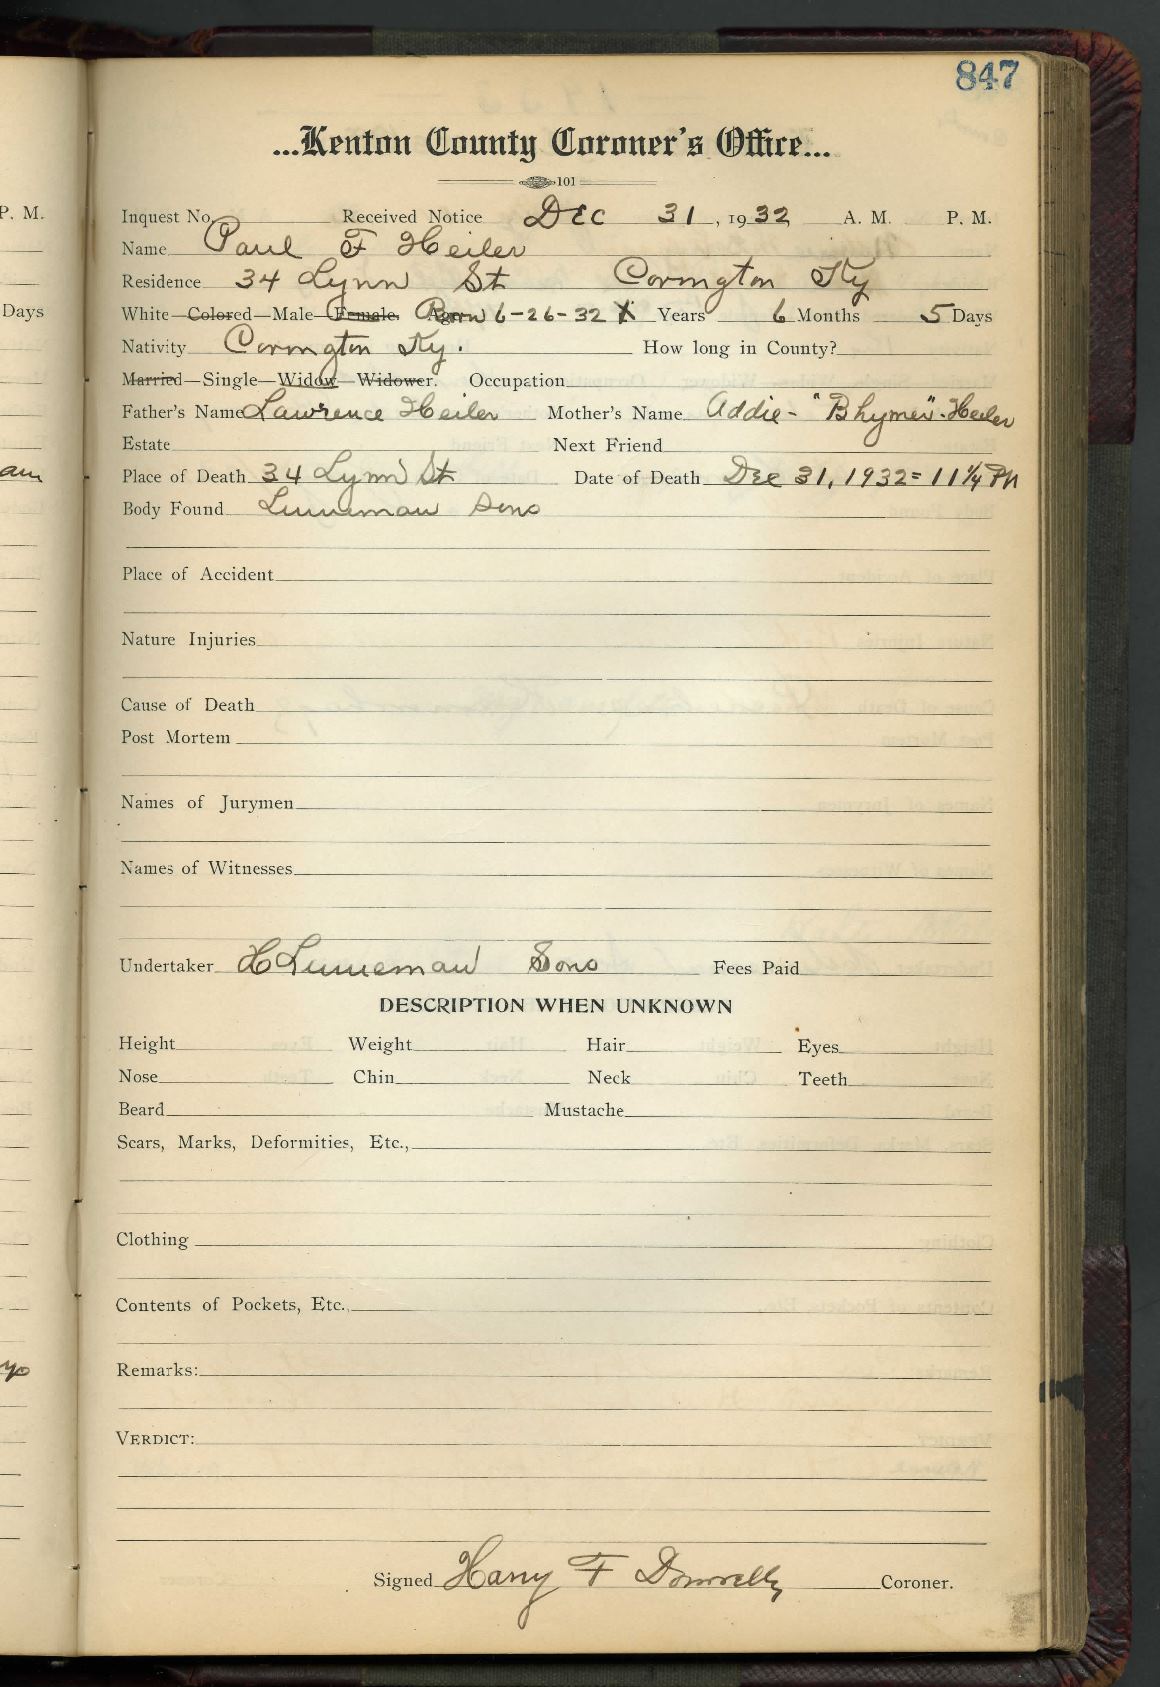 847
...Kenton County Coroner's Office...
101
Inquest No. Received Notice Dec 31, 1932 A. M. P. M.
Name Paul F Heiler
Residence 34 Lynn St Covington Ky
White—Colored—Male—Female. Born 6-26-32 X Years 6 Months 5 Days
Nativity Covington Ky. How long in County?
Married—Single—Widow—Widower. Occupation
Father's Name Lawrence Heiler Mother's Name Addie - "Bhymer" - Heiler
Estate Next Friend
Place of Death 34 Lynn St Date of Death Dec 31, 1932 = 11 1/4 PM
Body Found Linneman Sons
Place of Accident
Nature Injuries
Cause of Death
Post Mortem
Names of Jurymen
Names of Witnesses
Undertaker H Linneman Sons Fees Paid
DESCRIPTION WHEN UNKNOWN
Height Weight Hair Eyes
Nose Chin Neck Teeth
Beard Mustache
Scars, Marks, Deformities, Etc.,
Clothing
Contents of Pockets, Etc.,
Remarks:
VERDICT:
Signed Harry F Donnelly Coroner.
P. M.
Days